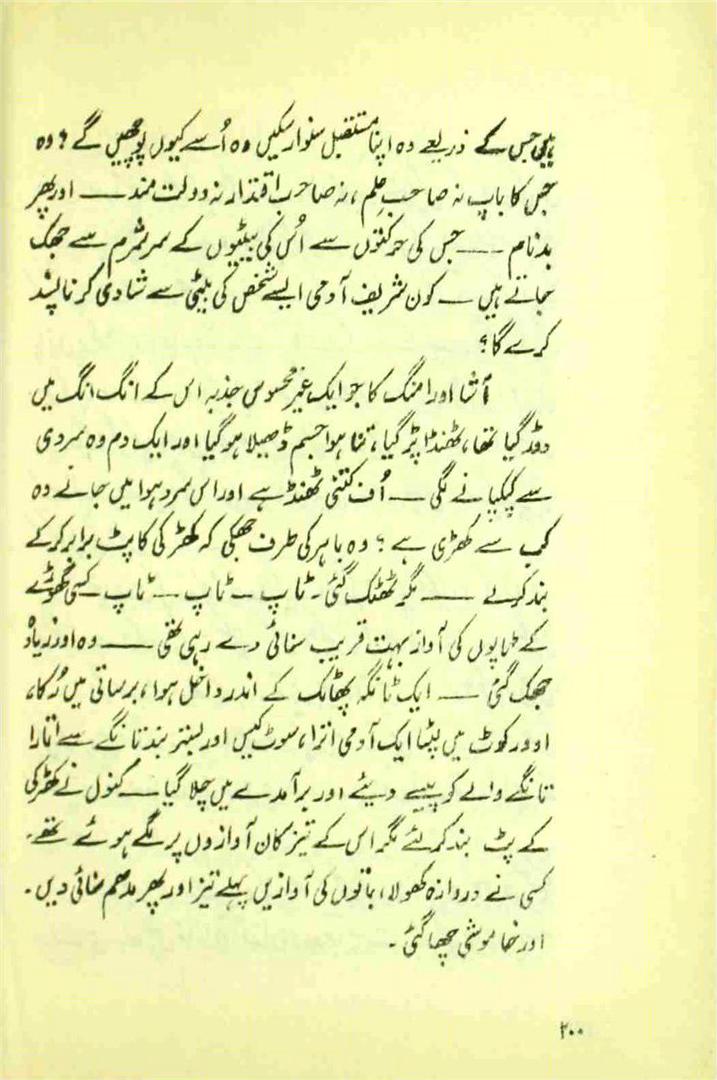 ہیں جس کے ذریعے وہ اپنا مستقبل سنوار سکیں وہ اُسے کیوں پوچھیں گے؟ وہ
جس کا باپ نہ صاحبِ علم، نہ صاحبِ اقتدار نہ دولت مند — اور پھر
بدنام — جس کی حرکتوں سے اُس کی بیٹیوں کے سر شرم سے جھک
جاتے ہیں — کون شریف آدمی ایسے شخص کی بیٹی سے شادی کرنا پسند
کرے گا؟
آشا اور امنگ کا جو ایک غیر محسوس جذبہ اس کے انگ انگ میں
دوڑ گیا تھا، ٹھنڈا پڑ گیا، تنا ہوا جسم ڈھیلا ہو گیا اور ایک دم وہ سردی
سے کپکپانے لگی — اُف کتنی ٹھنڈ ہے اور اس سرد ہوا میں جانے وہ
کب سے کھڑی ہے؟ وہ باہر کی طرف جھکی کہ کھڑکی کا پٹ برابر کر کے
بند کر لے — مگر ٹھٹک گئی۔ ٹاپ — ٹاپ — ٹاپ کسی گھوڑے
کے ٹاپوں کی آواز بہت قریب سنائی دے رہی تھی — وہ اور زیادہ
جھک گئی — ایک ٹانگہ پھاٹک کے اندر داخل ہوا، برساتی میں رُکا،
اوور کوٹ میں لپٹا ایک آدمی اترا، سوٹ کیس اور بستر بند تانگے سے اتارا
تانگے والے کو پیسے دیئے اور برآمدے میں چلا گیا — کنول نے کھڑکی
کے پٹ بند کر لئے مگر اس کے تیز کان آوازوں پر لگے ہوئے تھے۔
کسی نے دروازہ کھولا، باتوں کی آوازیں پہلے تیز اور پھر مدھم سنائی دیں۔
اور خاموشی چھا گئی۔
۲۰۰